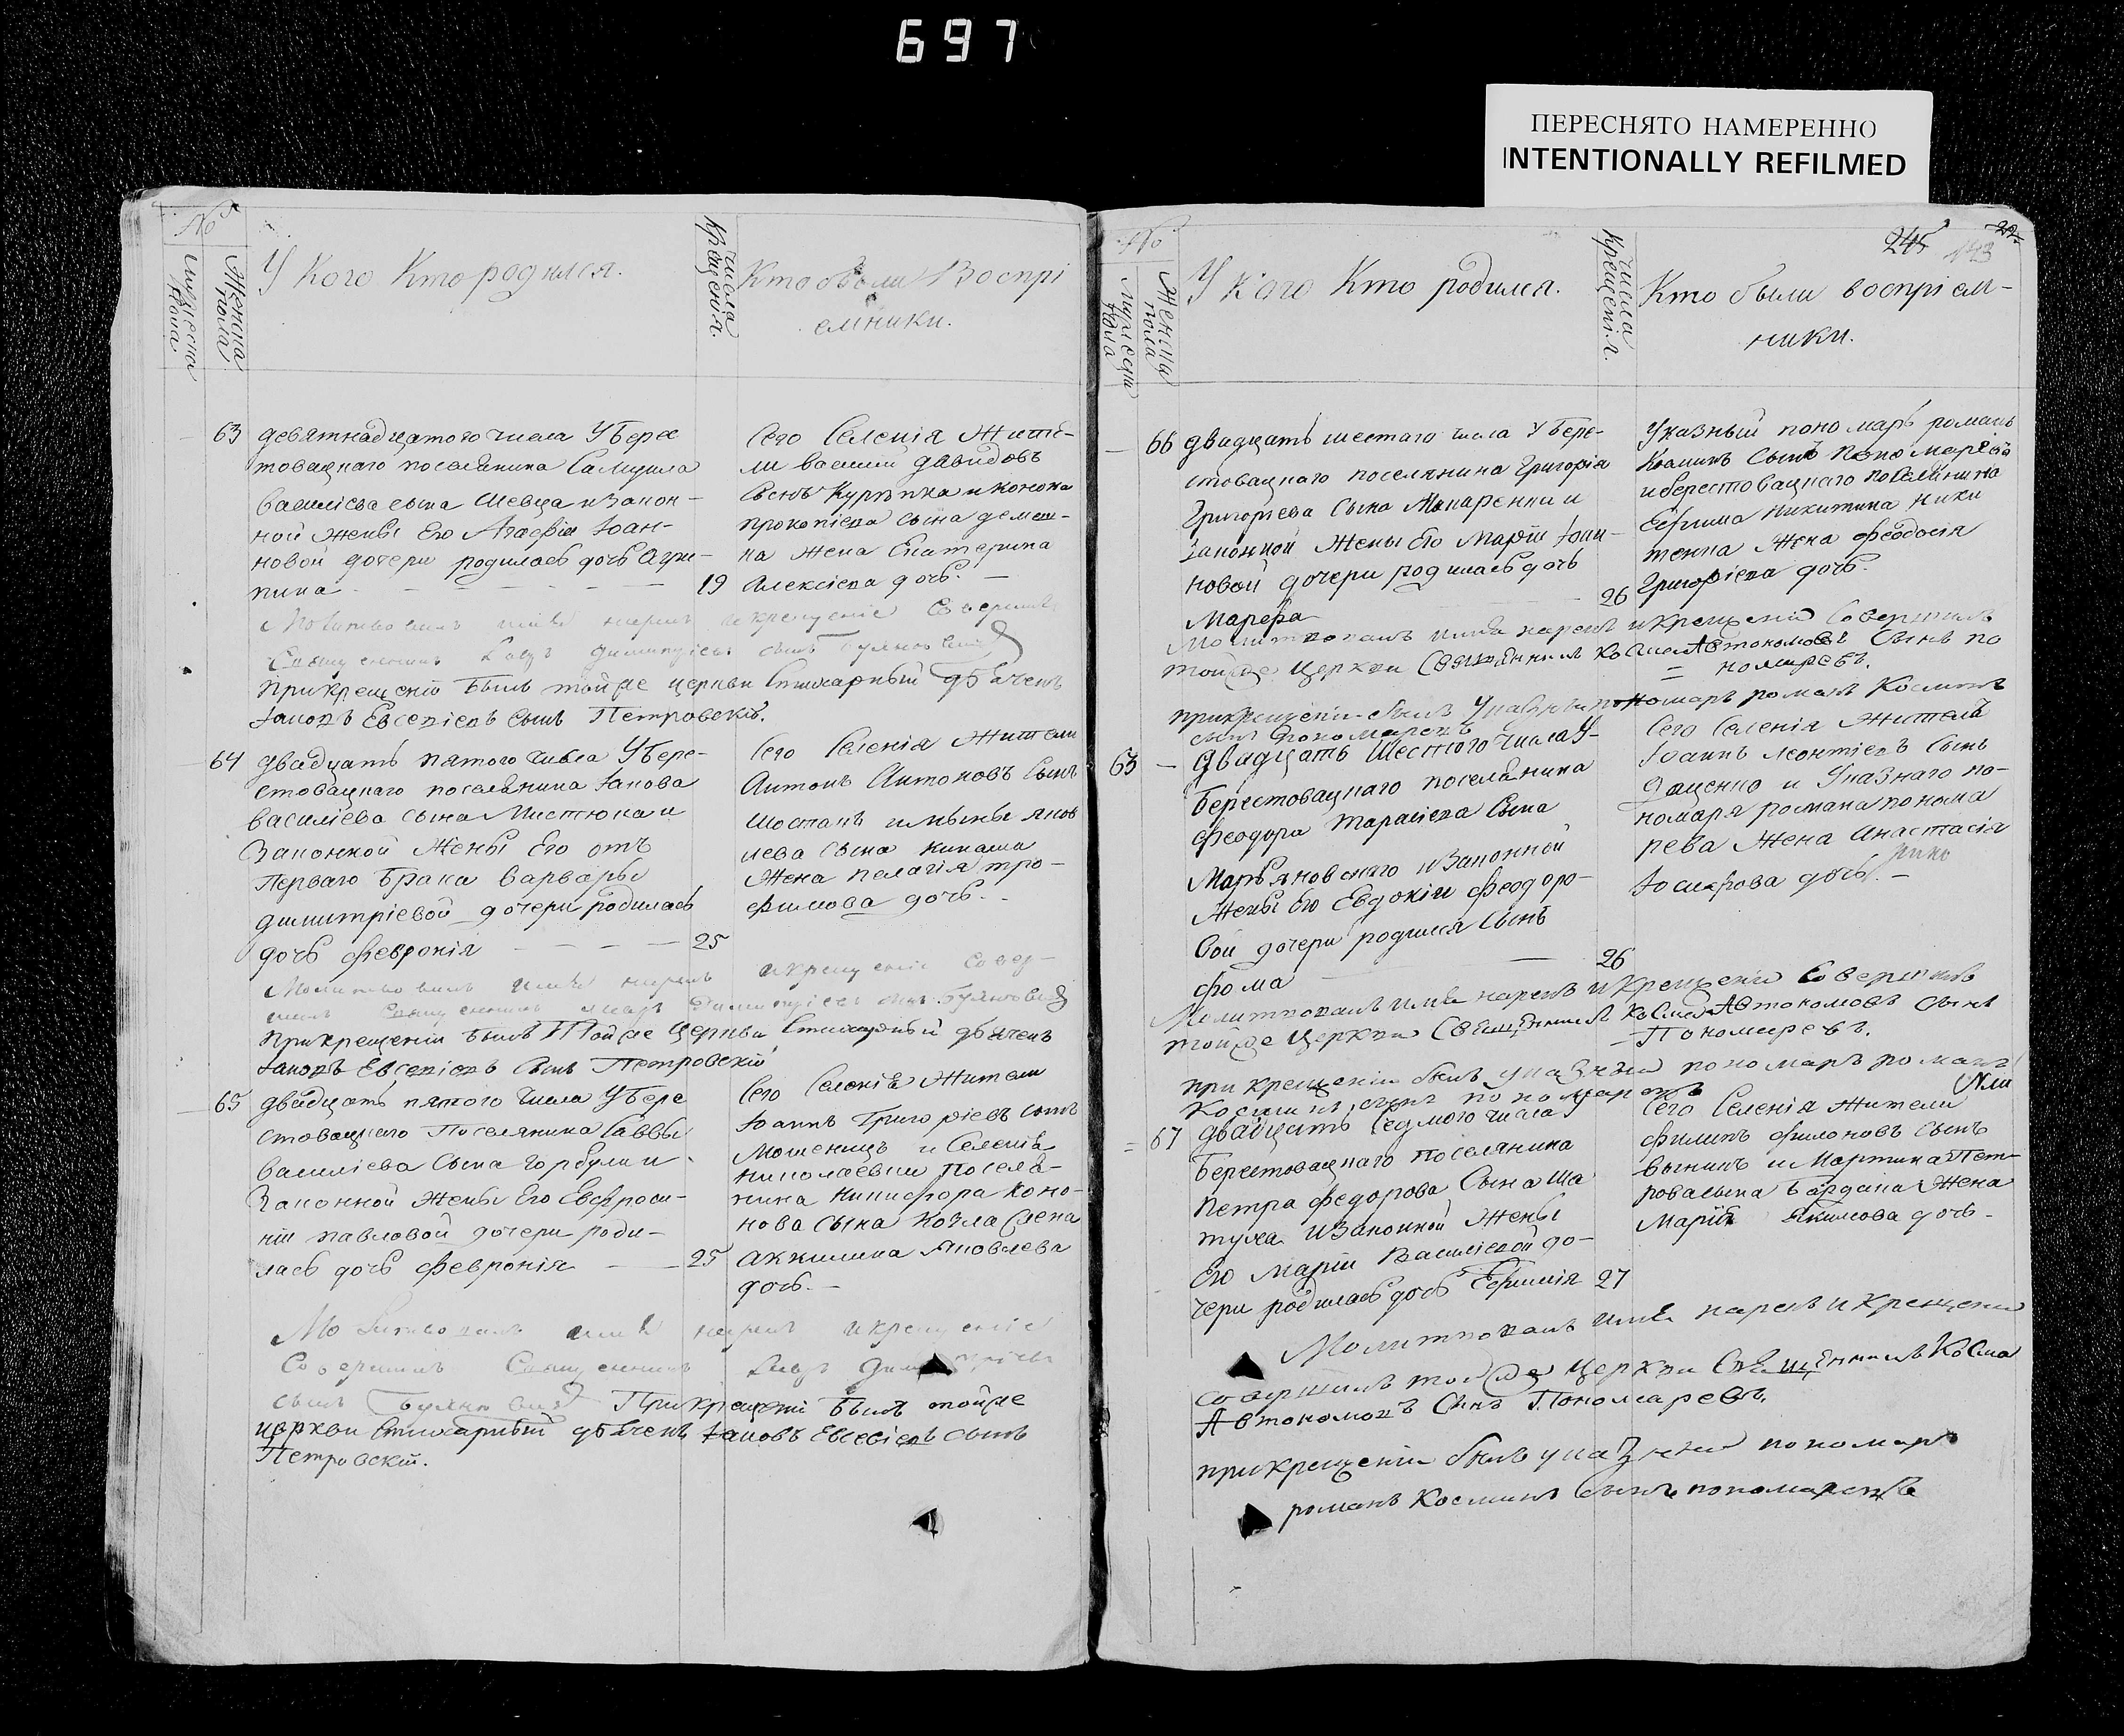 697
ПЕРЕСНЯТО НАМЕРЕННО
INTENTIONALLY REFILMED
№
Мужеска пола
Женска пола
У Кого Кто родился.
числа Крещенія.
Кто были Воспрі
емники.
63 девятнадцатого числа У Берес
товацкаго поселянина Самуила
Василіева сына Шевца и закон-
ной жены Его Агафіи Іоан-
новой дочери родилась дочь Агри-
пина 19
Сего Селенія Жите-
ли василій давидовъ
Сынъ и конона
прокопіева сына
на Жена Екатерина
Алексіева дочь.
Молитвовалъ имя нарекъ и крещеніе Соверши
Священникъ димитріевъ сынъ
При крещеніи былъ тойже церкви Стихарный дьяченъ
Іаковъ Евсевіевъ сынъ Петровскій.
64 двадцать пятого числа У Бере-
стовацкаго поселянина Іакова
василіева сына Мистюка и
Законной Жены Его отъ
Перваго Брака варвары
димитріевой дочери родилась
дочь Февронія 25
Сего Селенія Жители
Антонъ Антоновъ Сынъ
Шостакъ яков
лева сына
Жена пелагія тро-
фимова дочь.
Молитвовалъ имя нарекъ и крещеніе Совер-
шилъ Священникъ димитріевъ сынъ
При крещеніи былъ Тойже Церкви Стихарный дьяченъ
Іаковъ Евсевіевъ сынъ Петровскій
65 двадцать пятого числа У Бере
стовацкаго Поселянина Саввы
василіева Сына Горбули и
Законной Жены Его Евфроси-
ніи павловой дочери роди-
лась дочь Февронія 25
Сего Селенія Жители
Іоаннъ Григоріевъ сынъ
Мошенецъ и Селенія
николаевки поселя-
нина Никифора Коно-
нова сына Козла Жена
Акилина Яковлева
дочь.
Молитвовалъ имя нарекъ и крещеніе
Совершилъ Священникъ димитріевъ
сынъ При крещеніи былъ тойже
церкви Стихарный дьяченъ Іаковъ Евсевіевъ сынъ
Петровскій.
№
245
143
Мужеска пола
Женска пола
У Кого Кто родился.
числа Крещенія.
Кто были воспріем-
ники.
66 двадцать шестаго числа У Бере-
стовацкаго поселянина Григорія
Григоріева Сына Макаренки и
законной Жены Его Маріи Іоан-
новой дочери родилась дочь
Марфа 26
Указный пономарь романъ
Косминъ сынъ Пономаревъ
и берестовацкаго поселянина
Ефима Никитина ники
тенка Жена Феодосія
Григоріева дочь.
Молитвовалъ имя нарекъ и крещеніе Совершилъ
тойже Церкви Священникъ Косма Автономовъ Сынъ по
номаревъ.
при крещеніи былъ Указный пономаръ романъ Косминъ
сынъ Пономаревъ
63 двадцать Шестого числа У
Берестовацкаго поселянина
Феодора Тарасіева Сына
Марьяновскаго и Законной
Жены Его Евдокіи Феодоро-
вой дочери родился Сынъ
Фома 26
Сего Селенія Житель
Іоаннъ Леонтіевъ Сынъ
Даценко и Указнаго по-
номаря романа понома
рева Жена Анастасія
Іосифова дочь.
Молитвовалъ имя нарекъ и крещеніе Совершилъ
тойже Церкви Священникъ Косма Автономовъ Сынъ
Пономаревъ.
при крещеніи былъ указный пономаръ романъ
Косминъ сынъ пономаревъ
67 двадцать Седмого числа У
Берестовацкаго Поселянина
Петра Федорова Сына Ша
тула и Законной Жены
Его Маріи Василіевой до-
чери родилась дочь Ефимія 27
Сего Селенія Жители
Филипъ Филоновъ Сынъ
и Мартина Пет-
рова сына Бардана Жена
Марія Якимова дочь
Молитвовалъ имя нарекъ и крещеніе
совершилъ тойже церкви Священникъ Косма
Автономовъ Сынъ Пономаревъ.
при крещеніи былъ указный пономаръ
романъ Косминъ Сынъ пономаревъ